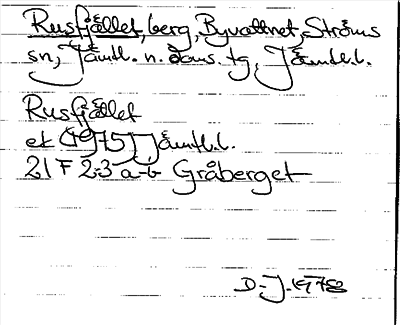 Rusfjället, berg, Byvattnet, Ströms
sn, Jämtl. n. doms. tg, Jämtl. l.
Rusfjället
ek (1975) Jämtl. l.
21 F 2-3 a-b Gråberget
D. J. 1978